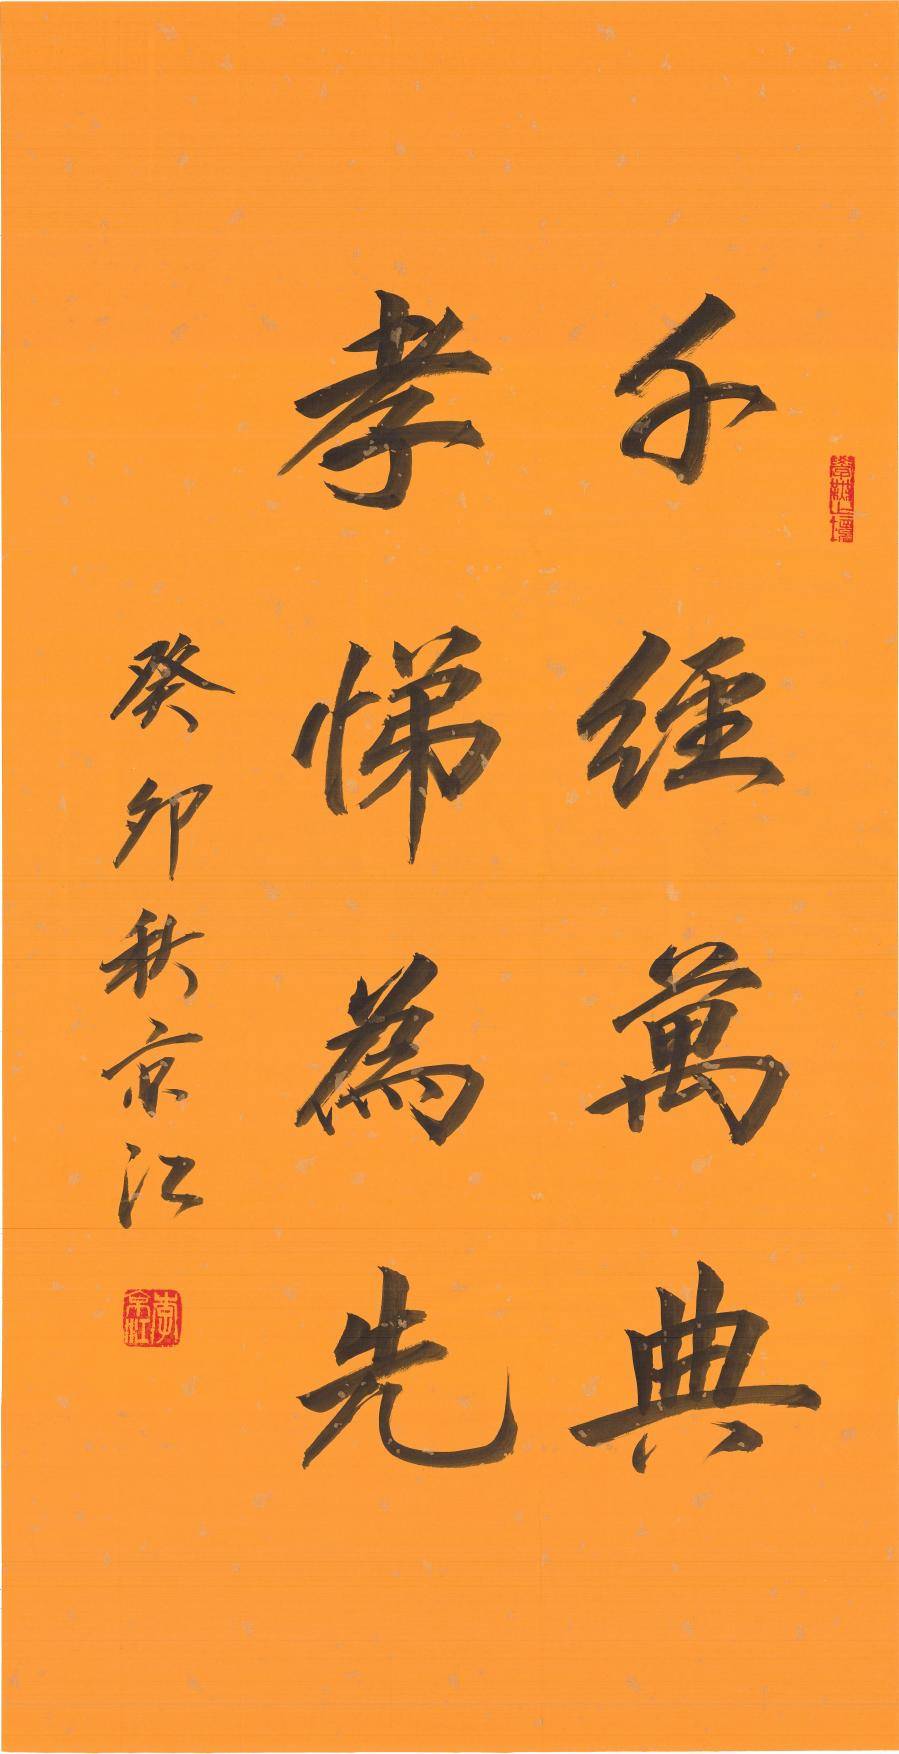 千經萬典
孝悌為先
癸卯秋京江